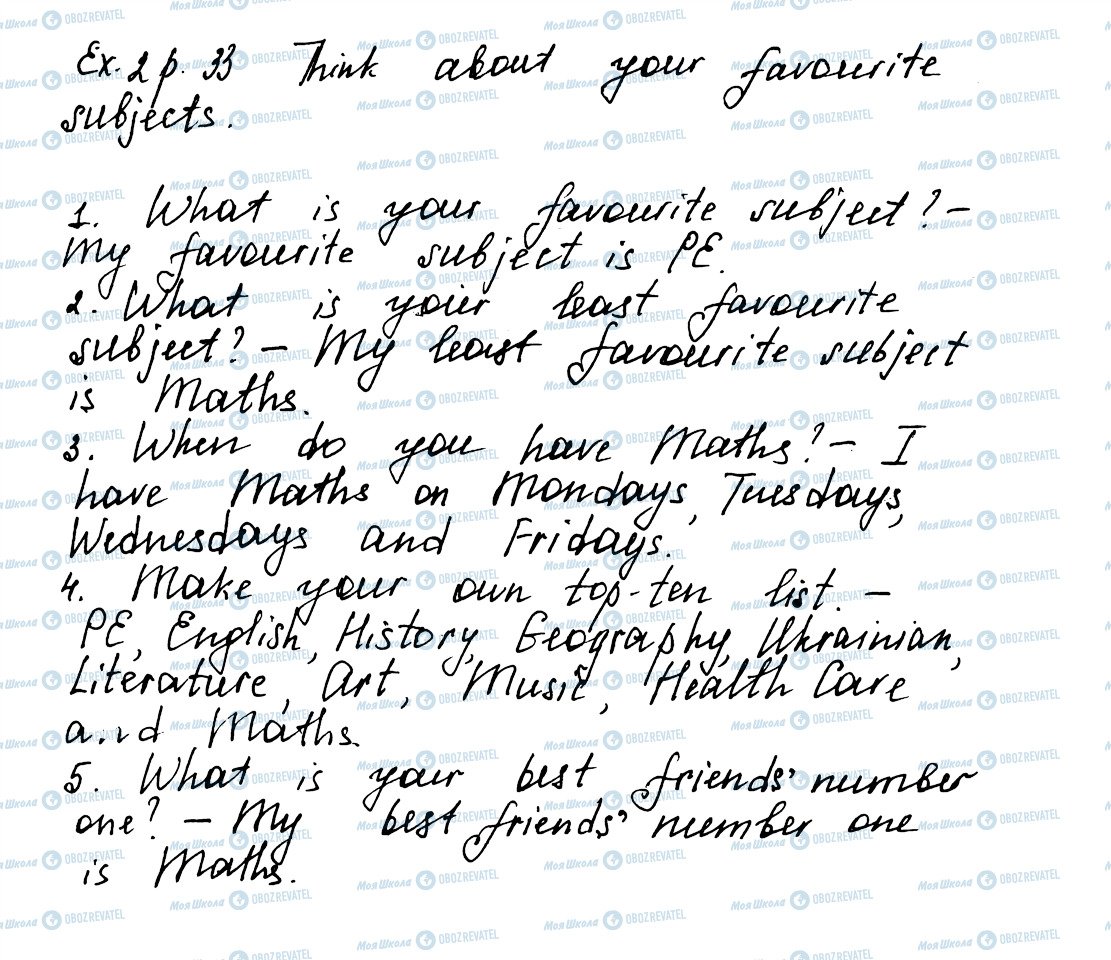 Ex. 2 p. 33 Think about your favourite
subjects.
1. What is your favourite subject? –
My favourite subject is PE.
2. What is your least favourite
subject? – My least favourite subject
is Maths.
3. When do you have Maths? – I
have Maths on Mondays, Tuesdays,
Wednesdays and Fridays.
4. Make your own top-ten list. –
PE, English, History, Geography, Ukrainian,
Literature, Art, Music, Health Care
and Maths.
5. What is your best friends' number
one? – My best friends' number one
is Maths.